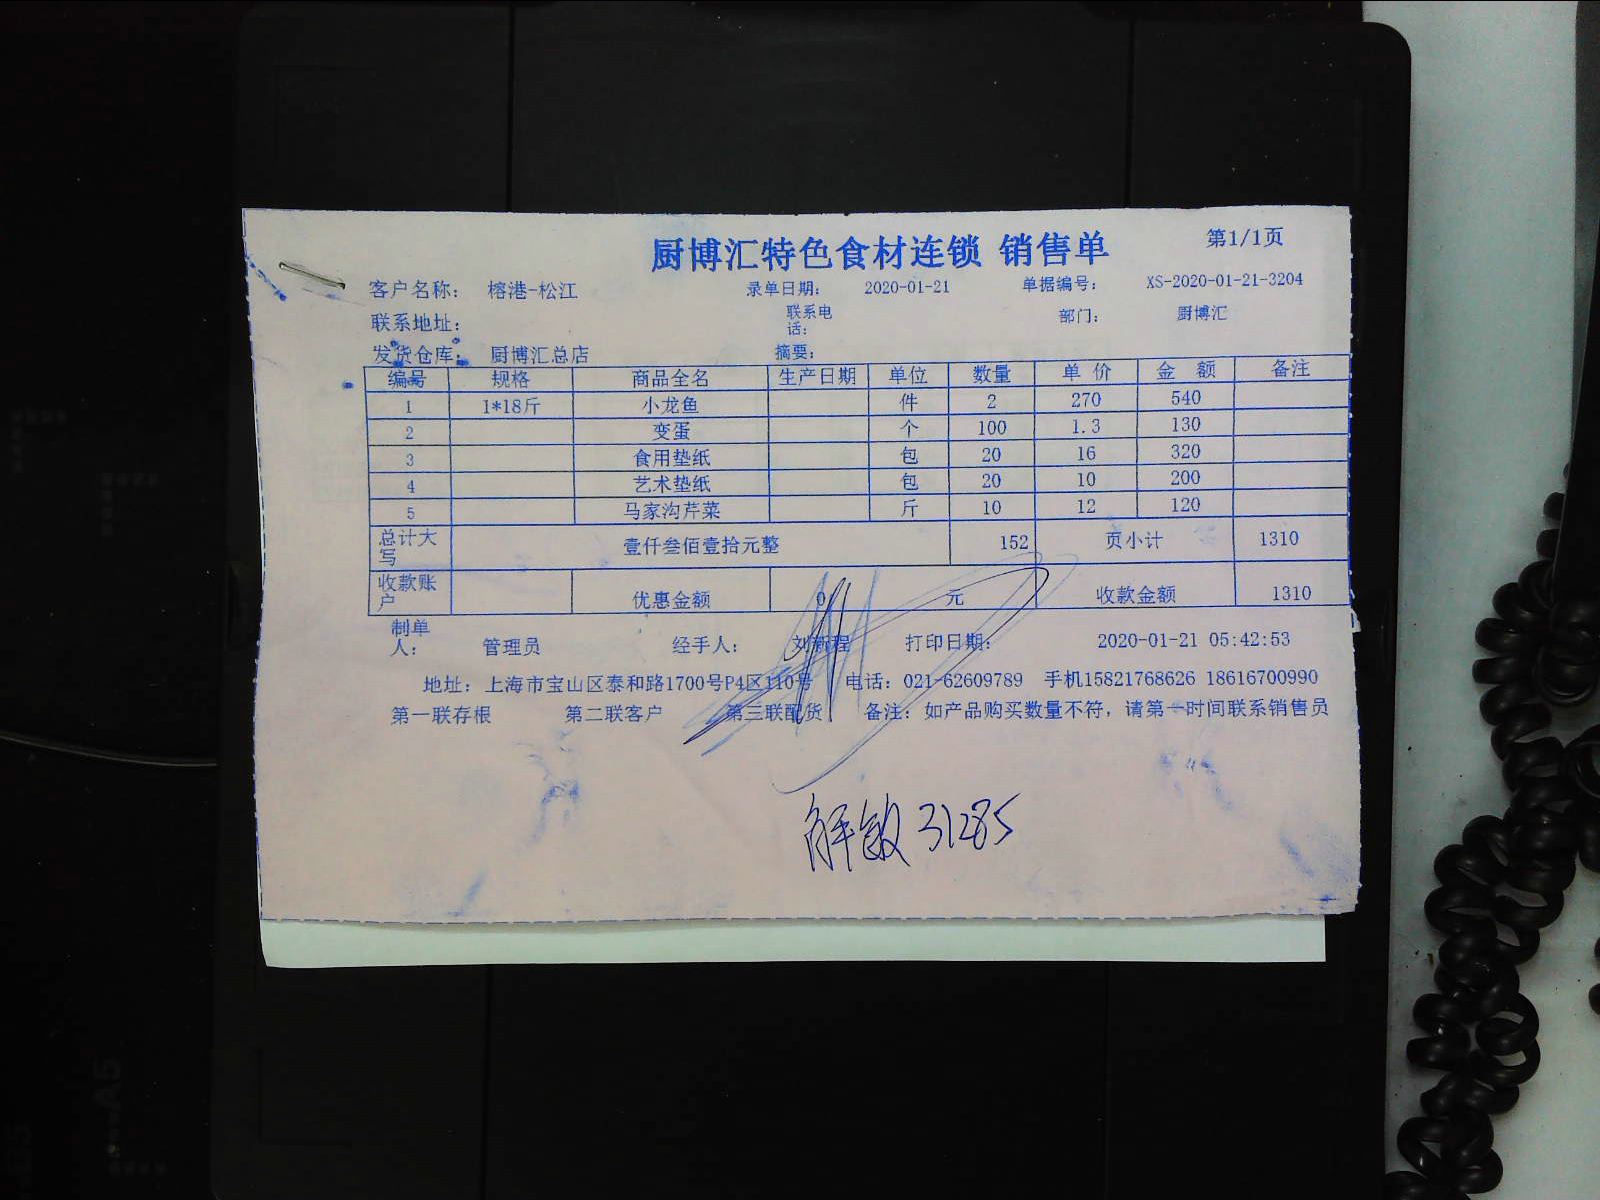 厨博汇特色食材连锁 销售单 第1/1页
客户名称： 榕港-松江 录单日期： 2020-01-21 单据编号： XS-2020-01-21-3204
联系地址： 联系电话： 部门： 厨博汇
发货仓库： 厨博汇总店 摘要：
编号 规格 商品全名 生产日期 单位 数量 单 价 金 额 备注
1 1*18斤 小龙鱼 件 2 270 540
2 变蛋 个 100 1.3 130
3 食用垫纸 包 20 16 320
4 艺术垫纸 包 20 10 200
5 马家沟芹菜 斤 10 12 120
总计大写 壹仟叁佰壹拾元整 152 页小计 1310
收款账户 优惠金额 0 元 收款金额 1310
制单人： 管理员 经手人： 刘新程 打印日期： 2020-01-21 05:42:53
地址：上海市宝山区泰和路1700号P4区110号 电话：021-62609789 手机15821768626 18616700990
第一联存根 第二联客户 第三联配货 备注：如产品购买数量不符，请第一时间联系销售员
解敏 31285